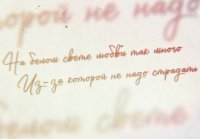 которой не надо
На белом свете любви так много
Из-за которой не надо страдать
белом свете